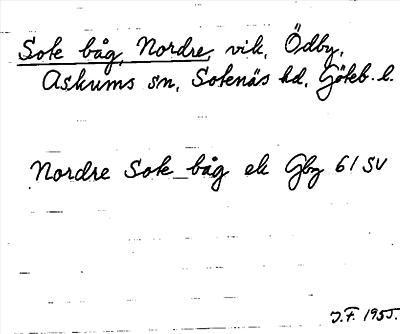 Sote båg, Nordre, vik, Ödby,
Askums sn, Sotenäs hd, Göteb. l.
Nordre Sote båg ek Gbg 61 SV
J.F. 1955.